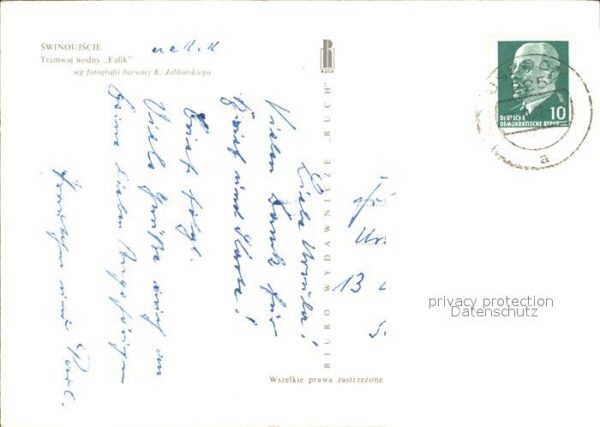 ŚWINOUJŚCIE
Tramwaj wodny „Falik”
wg fotografii barwnej K. Jabłońskiego
RUCH
BIURO WYDAWNICZE „RUCH”
Wszelkie prawa zastrzeżone
Liebe Ursula!
Vielen Dank für
Brief und Karte!
Brief folgt.
Viele Grüße auch an
Deine lieben Angehörigen
und Paul.
13
DEUTSCHE
DEMOKRATISCHE REPUBLIK
10
a
privacy protection
Datenschutz